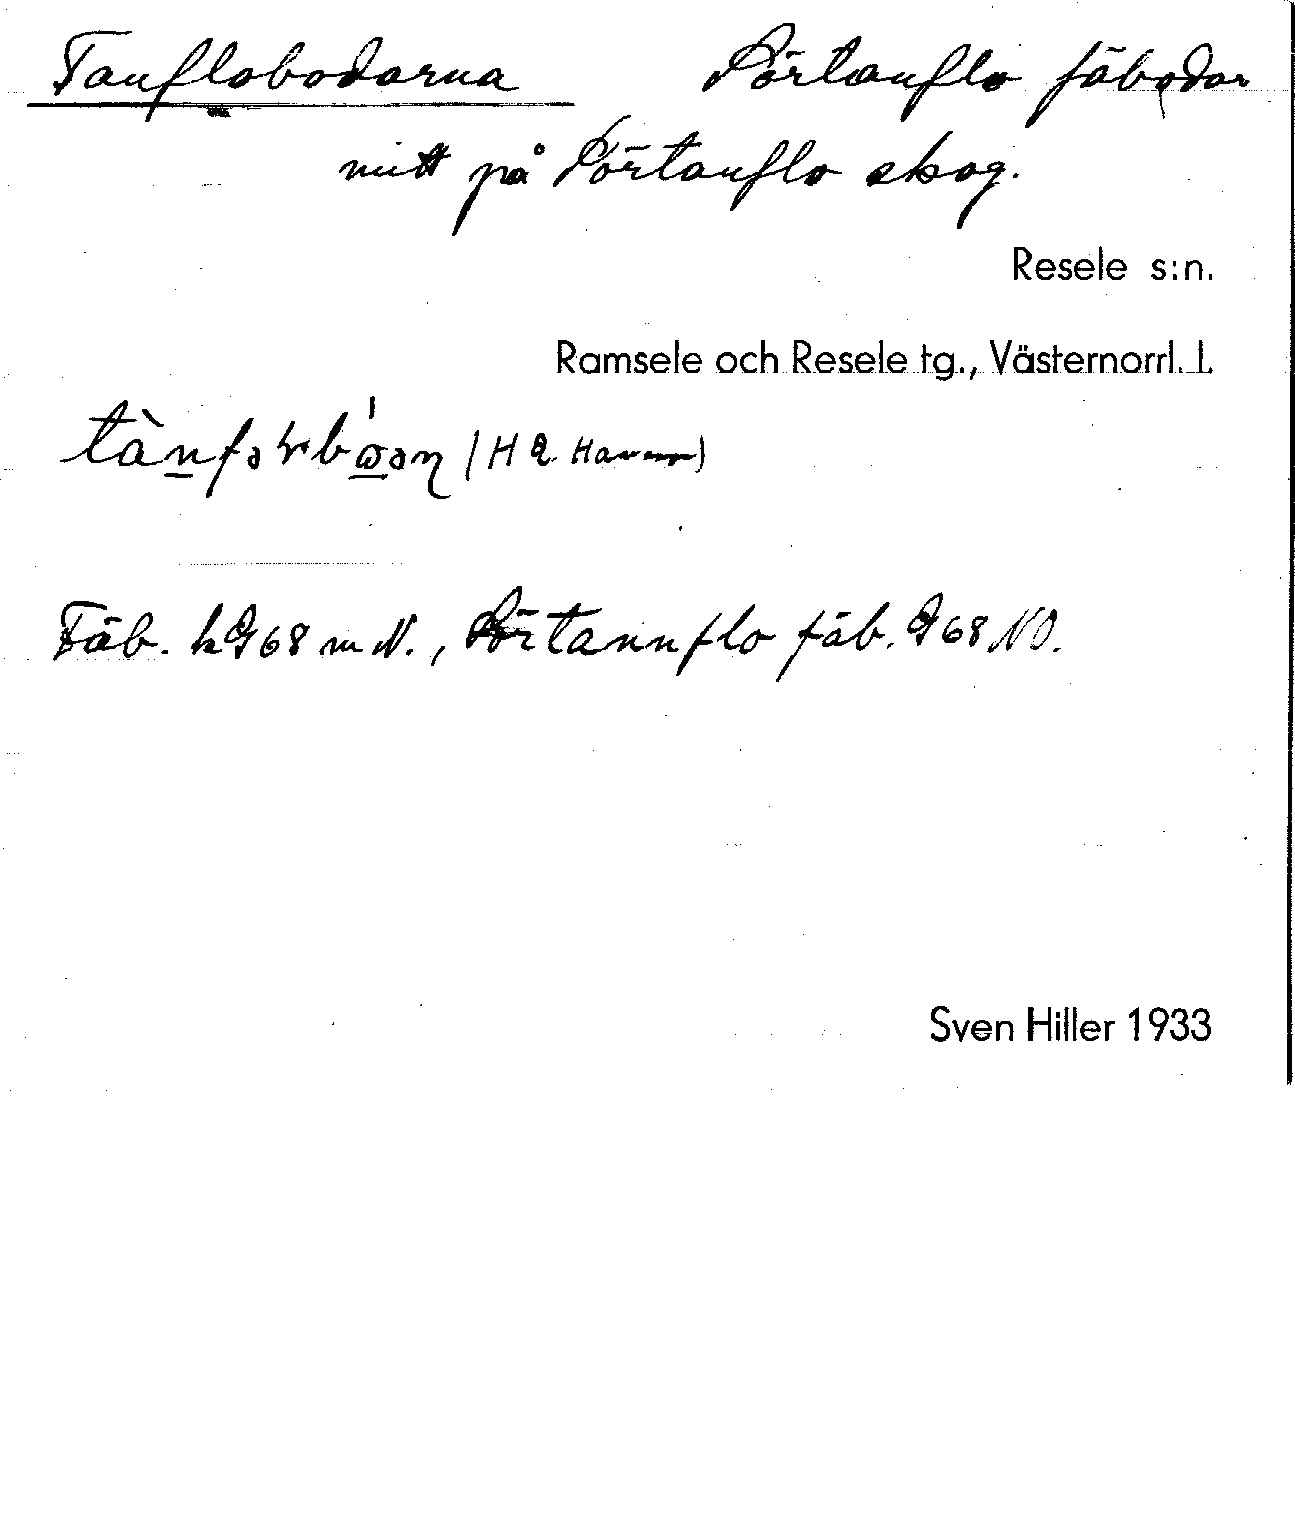 Tanflobodarna Pörtanflo fäbodar
mitt på Pörtanflo skog.
Resele s:n.
Ramsele och Resele tg., Västernorrl. l.
Fäb. k G68 m N., Pörtannflo fäb. G68 NO.
Sven Hiller 1933